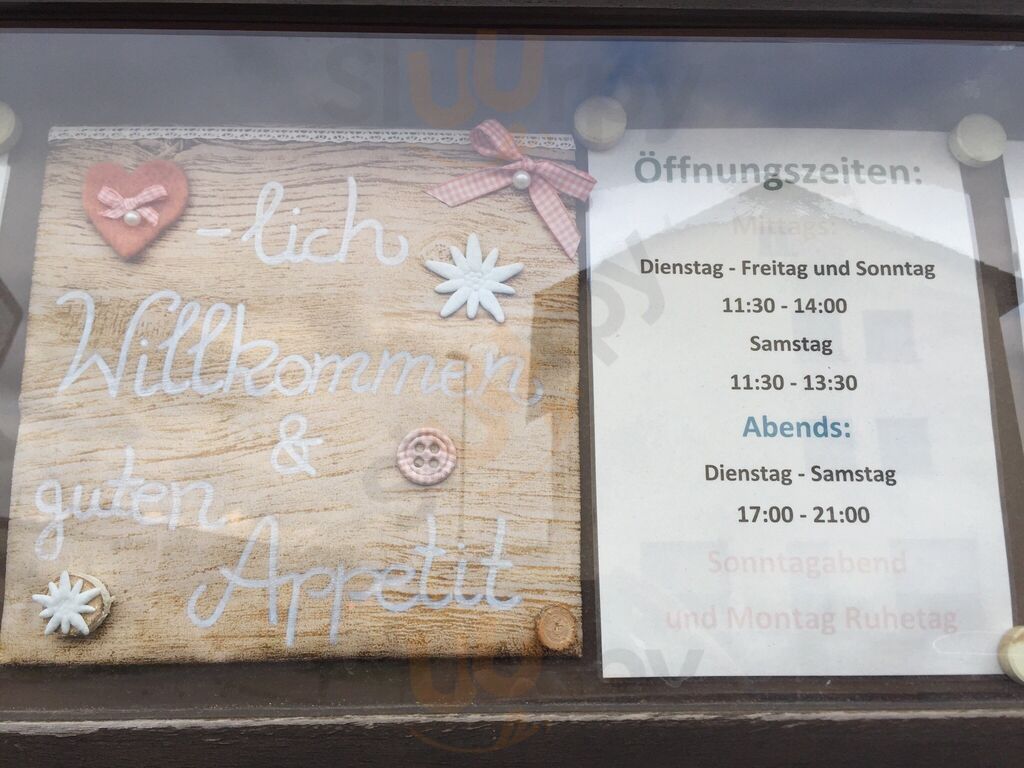 -lich
Willkommen,
&
guten
Appetit
Öffnungszeiten:
Mittags:
Dienstag - Freitag und Sonntag
11:30 - 14:00
Samstag
11:30 - 13:30
Abends:
Dienstag - Samstag
17:00 - 21:00
Sonntagabend
und Montag Ruhetag